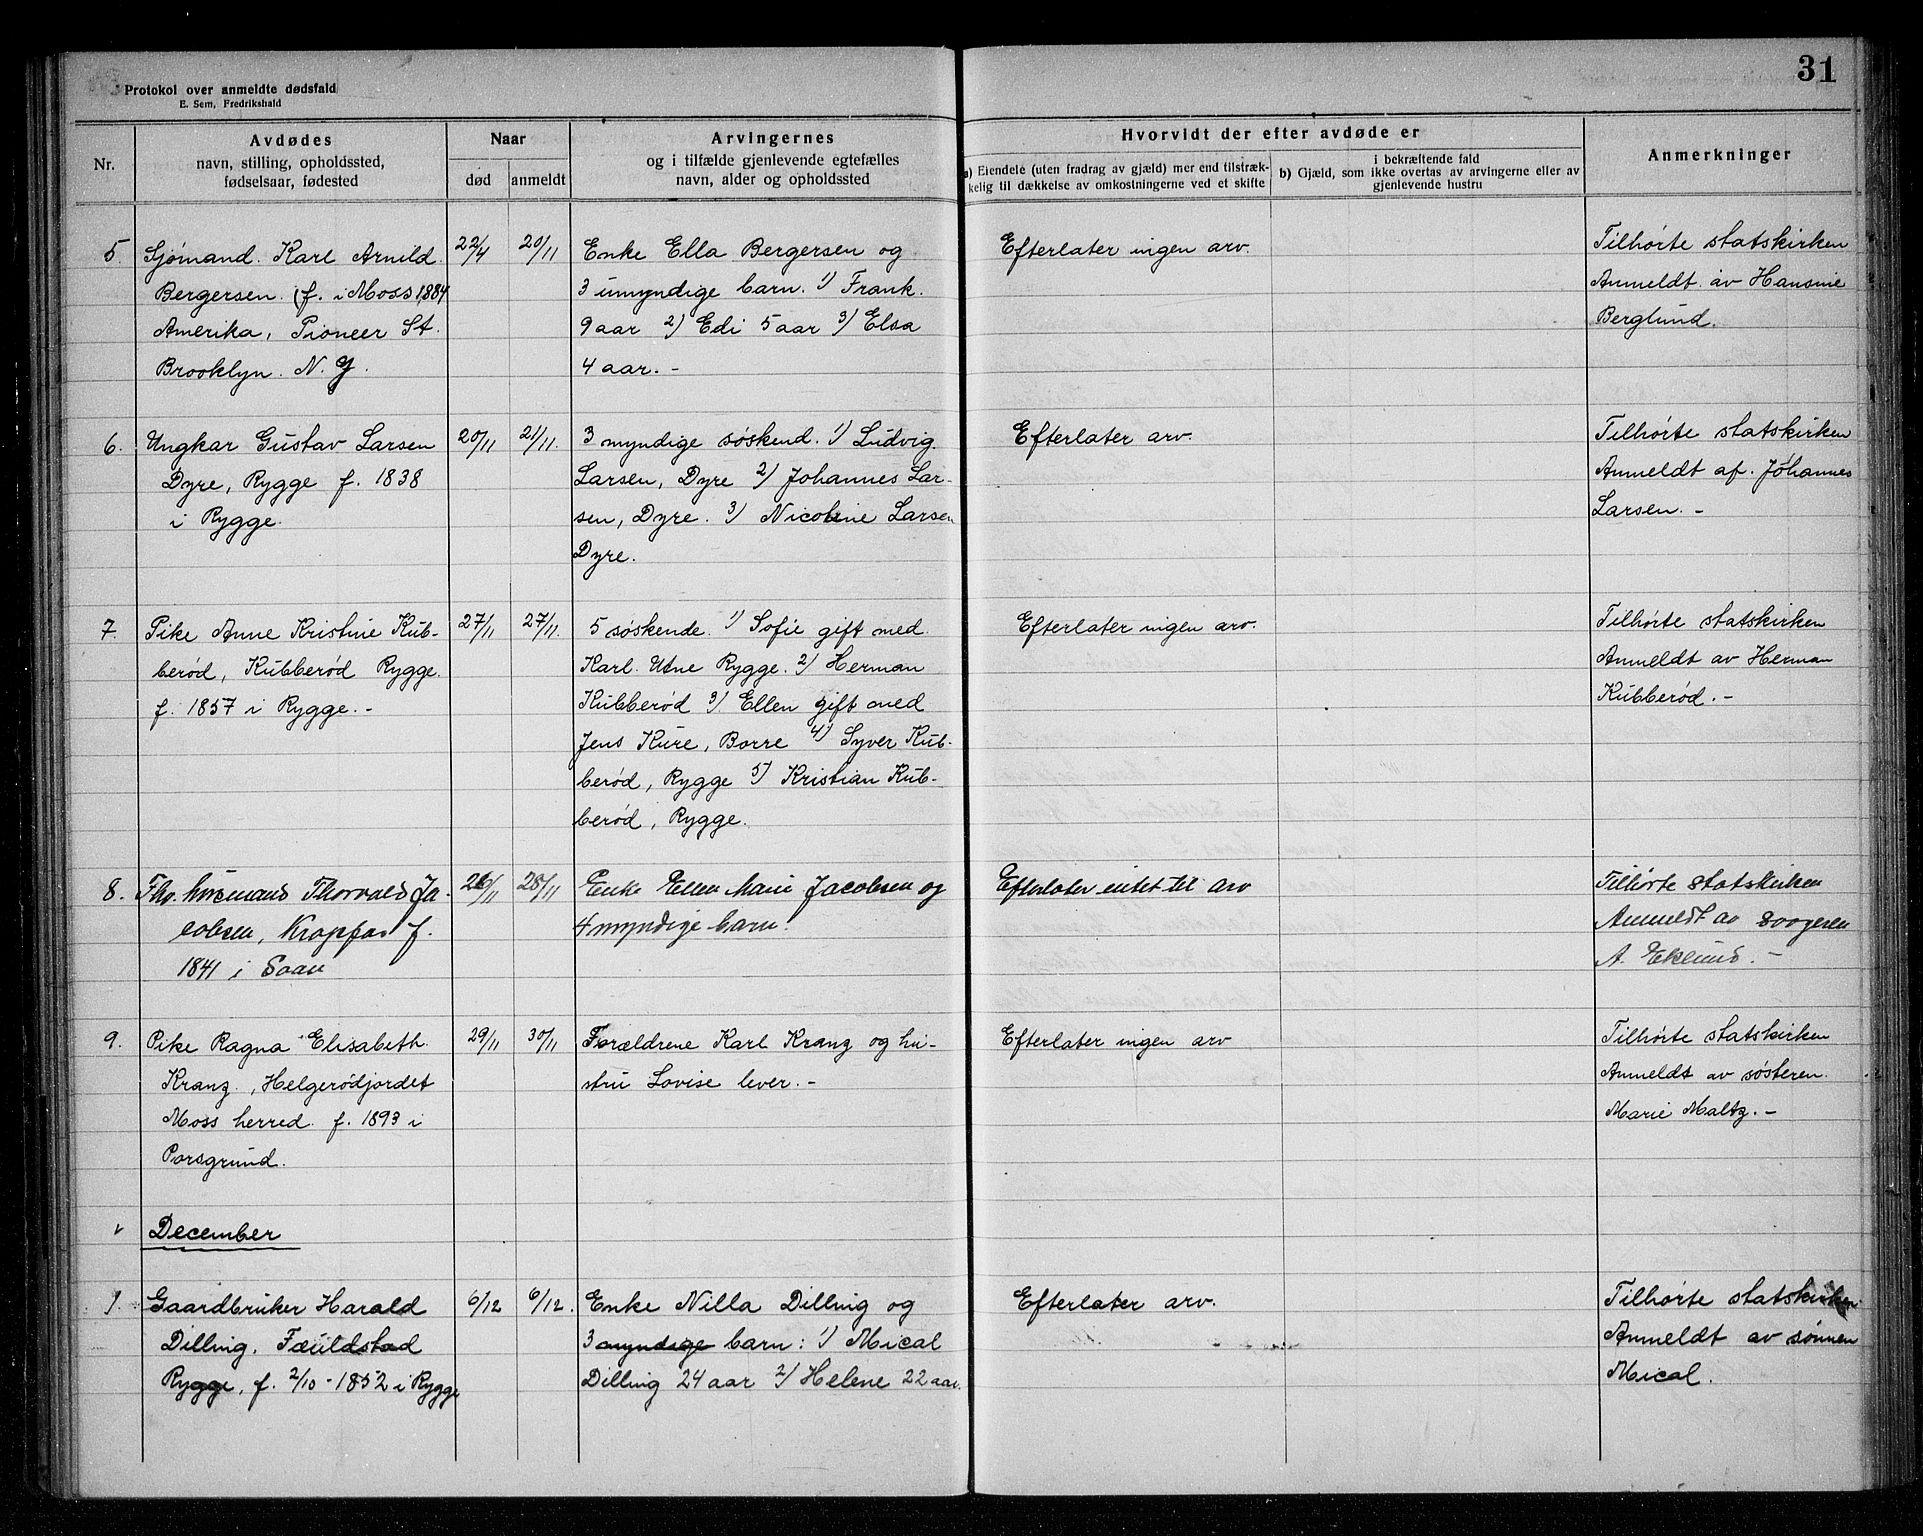 31
Protokol over anmeldte dødsfald
E. Sem, Fredrikshald
Nr.
Avdødes
navn, stilling, opholdssted,
fødselsaar, fødested
Naar
død
anmeldt
Arvingernes
og i tilfælde gjenlevende egtefælles
navn, alder og opholdssted
Hvorvidt der efter avdøde er
a) Eiendele (uten fradrag av gjæld) mer end tilstræk-
kelig til dækkelse av omkostningerne ved et skifte
i bekræftende fald
b) Gjæld, som ikke overtas av arvingerne eller av
gjenlevende hustru
Anmerkninger
5. Sjømand. Karl Arnild
Bergersen. (f. i Moss 1884
Amerika, Pioneer St.
Brooklyn. N. Y.
22/4
20/11
Enke Ella Bergersen og
3 umyndige barn. 1) Frank.
9 aar 2) Edi 5 aar 3) Elsa
4 aar. -
Efterlater ingen arv.
Tilhørte statskirken
Anmeldt av Hansine
Berglund.
6. Ungkar Gustav Larsen
Dyre, Rygge f. 1838
i Rygge.
20/11
21/11.
3 myndige søskend. 1) Ludvig.
Larsen, Dyre 2) Johannes Lar-
sen, Dyre. 3) Nicoline Larsen
Dyre.
Efterlater arv.
Tilhørte statskirken
Anmeldt af. Johannes
Larsen. -
7. Pike Anne Kristine Kub-
berød, Kubberød Rygge.
f. 1857 i Rygge. -
27/11
27/11.
5 søskende. 1) Sofie gift med.
Karl. Utne Rygge. 2) Herman
Kubberød 3) Ellen gift med
Jens Kure, Borre 4) Syver Kub-
berød, Rygge 5) Kristian Kub-
berød, Rygge.
Efterlater ingen arv.
Tilhørte statskirken
Anmeldt av Herman
Kubberød. -
8. Fhv. husmand Thorvald Ja-
cobsen, f.
1841 i
26/11
28/11
Enke Ellen Marie Jacobsen og
4 myndige barn.
Efterlater intet til arv
Tilhørte statskirken
Anmeldt av
A. Eklund. -
9. Pike Ragna Elisabeth.
Kranz., Helgerødjordet
Moss herred. f. 1893 i
Porsgrund.
29/11
30/11
Forældrene Karl Kranz og hu-
stru Lovise lever. -
Efterlater ingen arv
Tilhørte statskirken
Anmeldt av søsteren.
Marie Maltz. -
December
1. Gaardbruker Harald
Dilling. Fæuldstad
Rygge, f. 2/10 - 1852 i Rygge
6/12
6/12.
Enke Nilla Dilling og
3 myndige barn: 1) Mical
Dilling 24 aar 2) Helene 22 aar.
Efterlater arv.
Tilhørte statskirken
Anmeldt av sønnen
Mical.